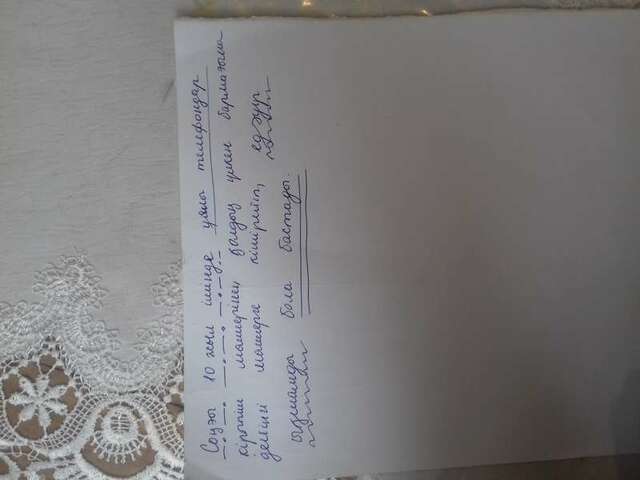 Соңғы 10 жыл ішінде ұялы телефондар
кірпіш мөлшерінен қолдың үлкен бармағына
дейінгі мөлшерге кішірейіп, едәуір
ықшамды бола бастады.